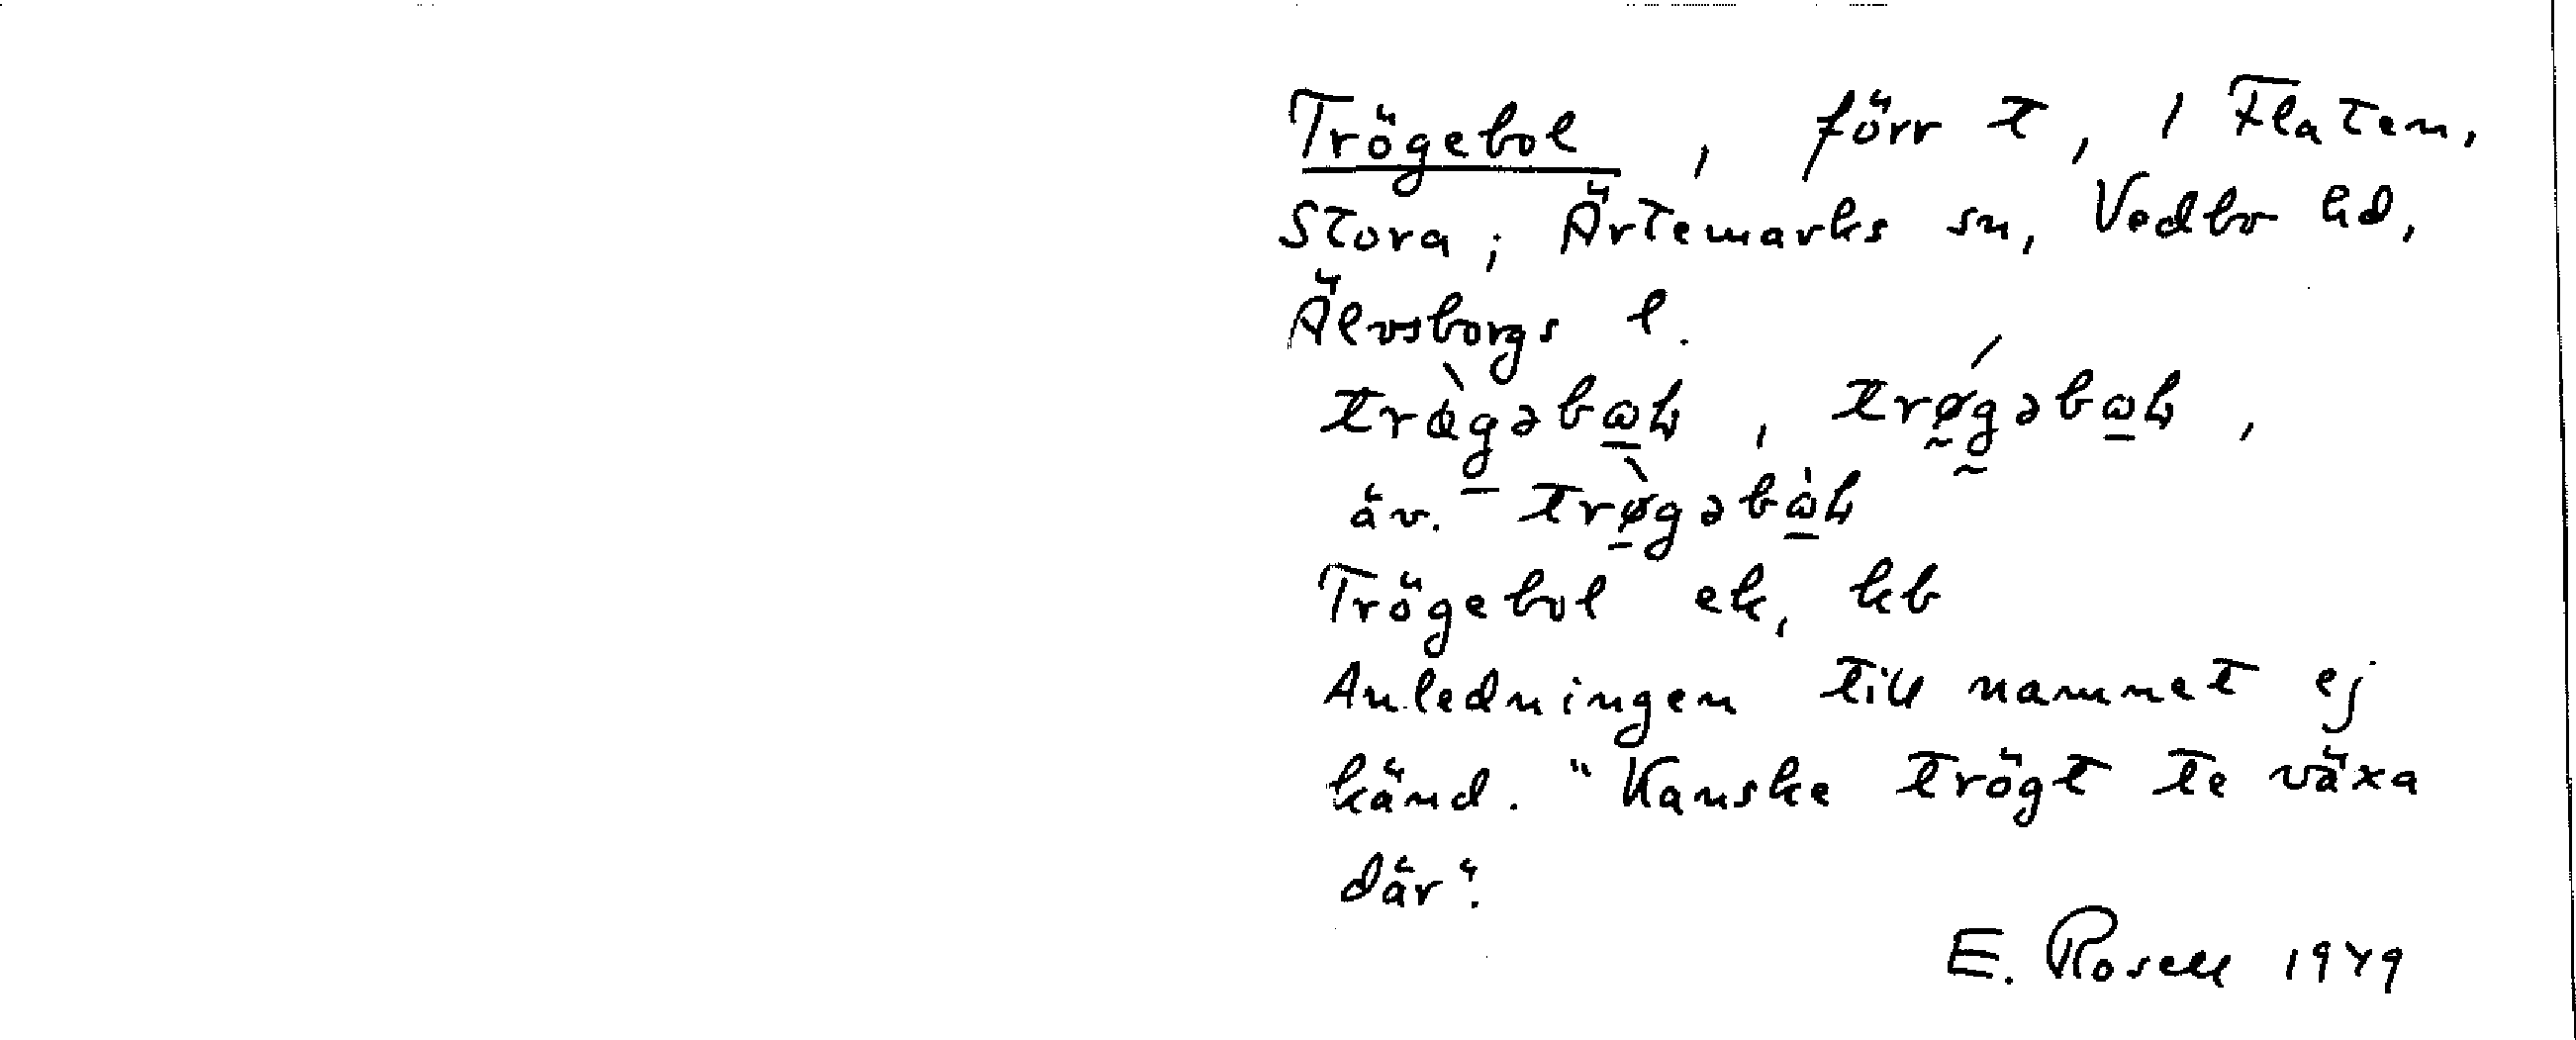 Trögebol, förr t, 1 Flaten,
Stora; Ärtemarks sn, Vedbo hd,
Älvsborgs l.
äv.
Trögebol ek, kb
Anledningen till namnet ej
känd. "Kanske trögt te växa
där".
E. Rosell 1949